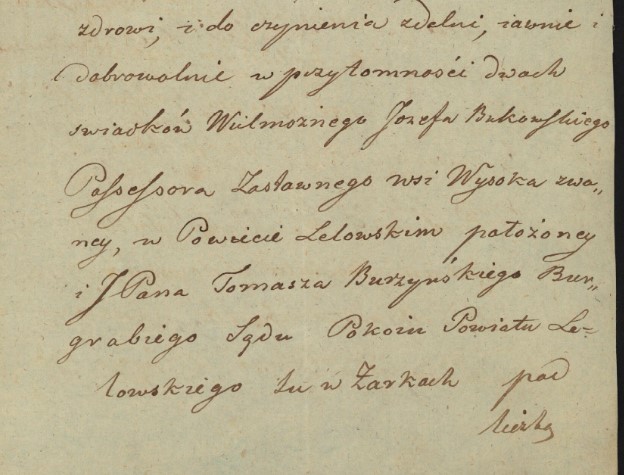 zdrowi, i do czynienia zdelni, iawnie i
dobrowolnie w przytomności dwoch
swiadków Wielmożnego Jozefa Bukowskiego
Possessora Zastawnego wsi Wysoka zwa„
ney, w Powiecie Lelowskim położoney
i J Pana Tomasza Burzyńskiego Bur„
grabiego Sądu Pokoiu Powiatu Le-
lowskiego tu w Zarkach pod
liczbą